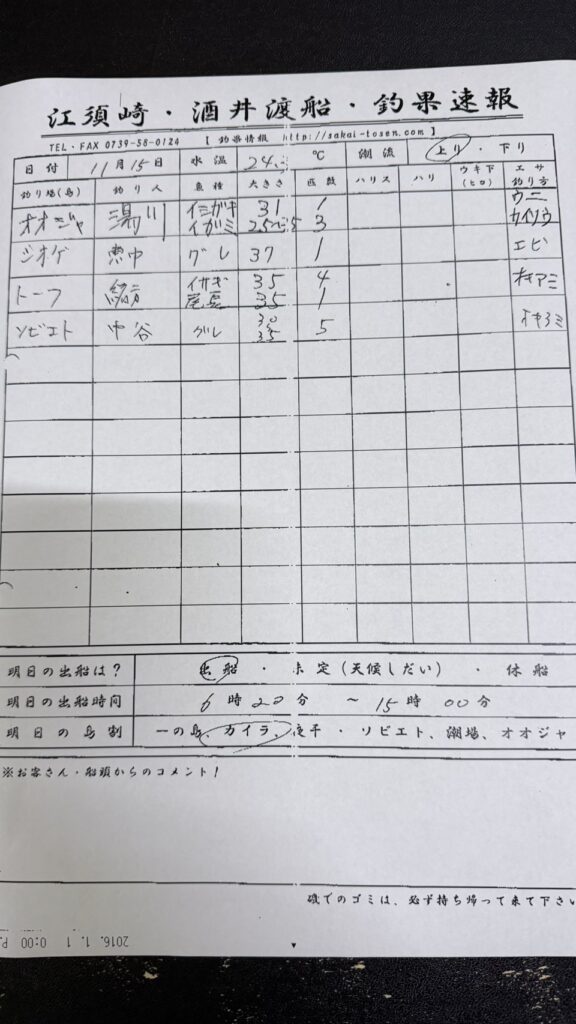 江須崎・酒井渡船・釣果速報
TEL・FAX 0739-58-0124 【 釣果情報 http://sakai-tosen.com 】
日付 11月15日 水温 24.5 ℃ 潮流 上り・下り
釣り場(島) 釣り人 魚種 大きさ 匹数 ハリス ハリ ウキ下(ヒロ) エサ釣り方
オオジャ 湯川 イシガキ 31 1 ウニ
イガミ 25〜35 3 カイソウ
ジオゲ 恵中 グレ 37 1 エビ
トーフ 緒方 イサギ 35 4 オキアミ
尾長 35 1
ソビエト 中谷 グレ 30 35 5 オキアミ
明日の出船は? 出船・未定(天候しだい)・休船
明日の出船時間 6時20分 〜 15時00分
明日の島割 一の島、カイラ、夜干・ソビエト、潮場、オオジャ
※お客さん・船頭からのコメント!
磯でのゴミは、必ず持ち帰って来て下さい
2016. 1. 1 0:00 P.